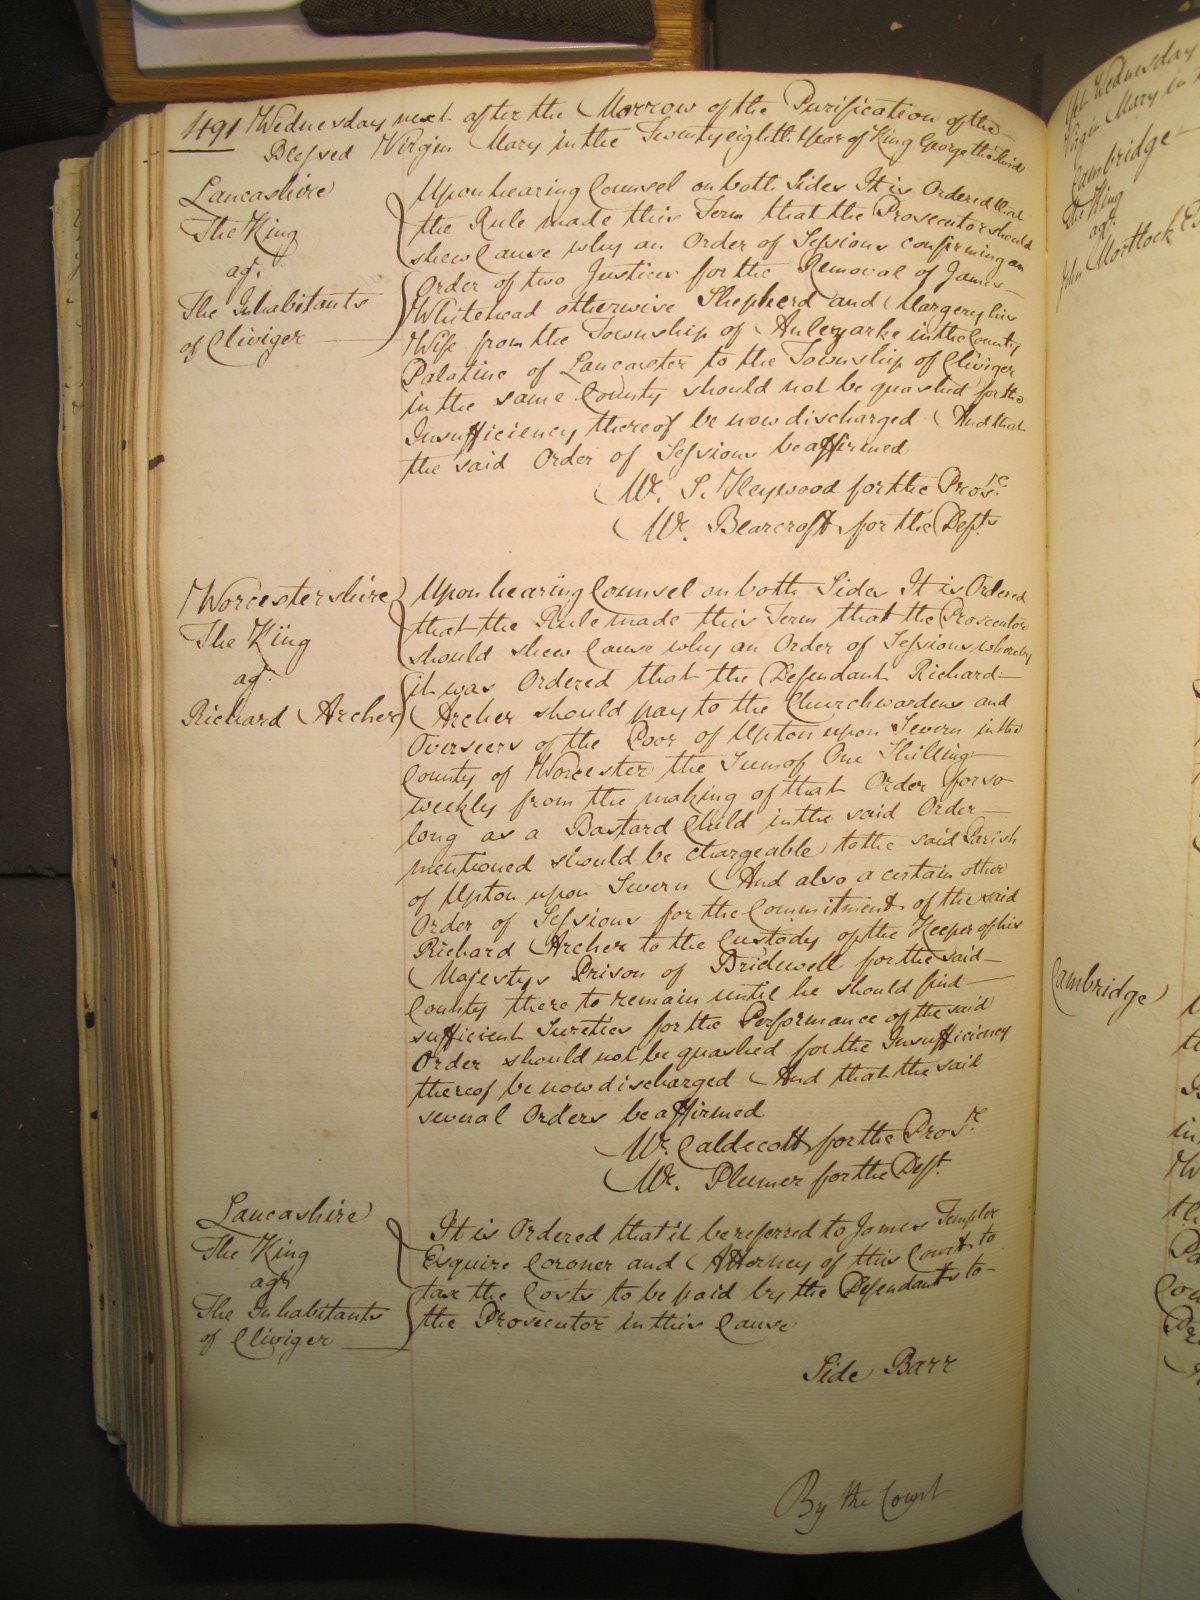 491 Wednesday next after the Morrow of the Purification of the
Blessed Virgin Mary in the Twenty eighth Year of King George the Third
Lancashire
The King
agt.
The Inhabitants
of Cliviger
Upon hearing Counsel on both Sides It is Ordered that
the Rule made this Term that the Prosecutor should
shew Cause why an Order of Sessions confirming an
Order of two Justices for the Removal of James
Whitehead otherwise Shepherd and Margery his
Wife from the Township of in the County
Palatine of Lancaster to the Township of Cliviger
in the same County should not be quashed for the
Insufficiency thereof be now discharged And that
the said Order of Sessions be affirmed
Mr. S. Heywood for the Prosr.
Mr. Bearcroft for the Defts
Worcestershire
The King
agt.
Richard Archer
Upon hearing Counsel on both Sides It is Ordered
that the Rule made this Term that the Prosecutor
should shew Cause why an Order of Sessions whereby
it was Ordered that the Defendant Richard
Archer should pay to the Churchwardens and
Overseers of the Poor of Upton upon Severn in the
County of Worcester the Sum of One Shilling
weekly from the making of that Order for so
long as a Bastard Child in the said Order
mentioned should be chargeable to the said Parish
of Upton upon Severn And also a certain other
Order of Sessions for the Commitment of the said
Richard Archer to the Custody of the Keeper of his
Majestys Prison of Bridewell for the said
County there to remain until he should find
sufficient Sureties for the Performance of the said
Order should not be quashed for the Insufficiency
thereof be now discharged And that the said
several Orders be affirmed
Mr. Caldecott for the Prosr.
Mr. Plumer for the Deft.
Lancashire
The King
agt
The Inhabitants
of Cliviger
It is Ordered that it be referred to James Templer
Esquire Coroner and Attorney of this Court to
tax the Costs to be paid by the Defendants to
the Prosecutor in this Cause
Side Barr
By the Court
Wednesday
Virgin Mary in
Cambridge
The King
agt.
John Mortlock
Cambridge